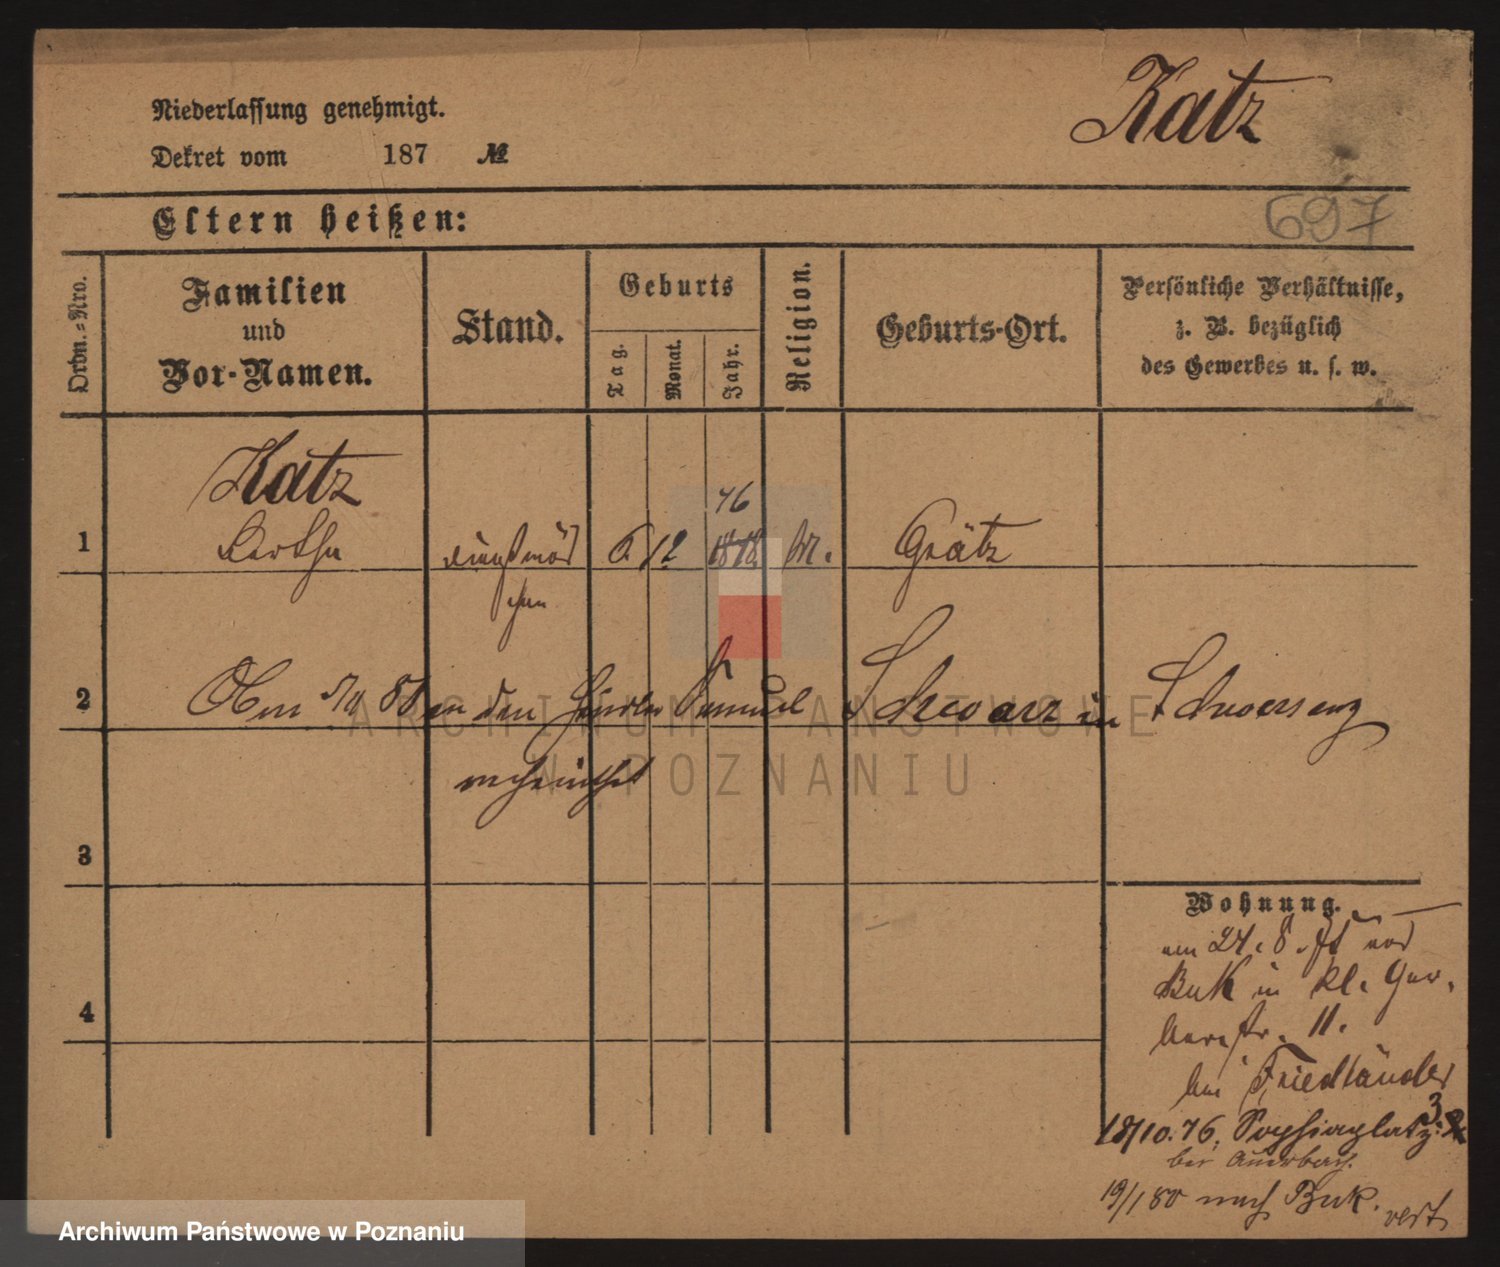 Niederlassung genehmigt.
Katz
Dekret vom 187 №
Eltern heißen:
697
Ordn.=Nro.
Familien
und
Vor-Namen.
Stand.
Geburts
Tag.
Monat.
Jahr.
Religion.
Geburts-Ort.
Persönliche Verhältnisse,
z. B. bezüglich
des Gewerbes u. s. w.
Katz
76
1 Bertha 6 12 Grätz
2 an den Händler Samuel Schwarz in Schwersenz
verheirathet
3
Wohnung.
am 24. 8. von
Buk in kl. Ger-
4 berstr. 11.
bei Friedländer
18/10. 76. Sapiehaplatz 3
bei Auerbach.
19/1 80 nach Buk.
verh
ARCHIWUM PAŃSTWOWE
W POZNANIU
Archiwum Państwowe w Poznaniu